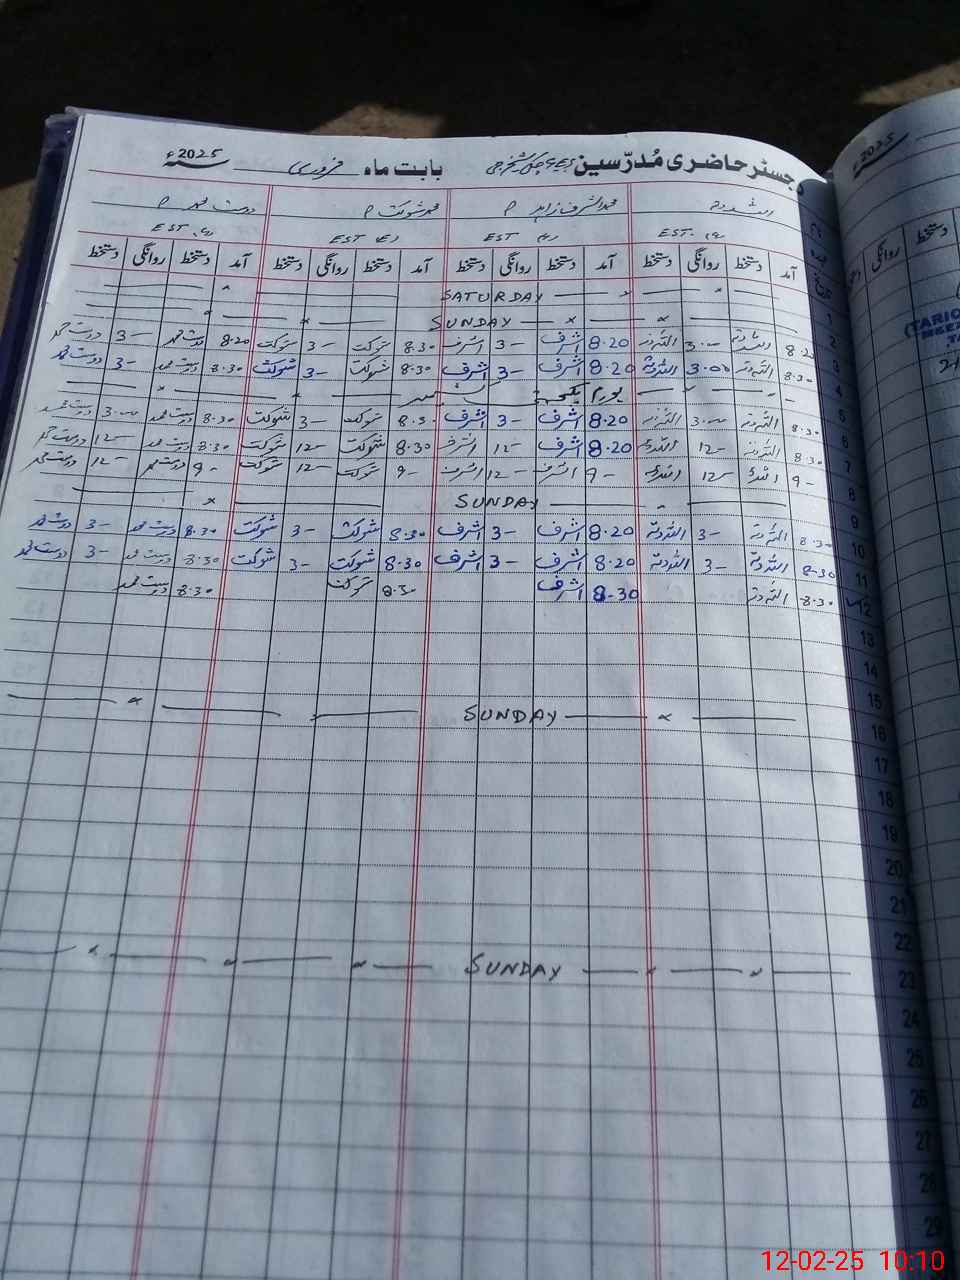 رجسٹر حاضری مُدرّسین بابت ماہ فروری 2025ء
اللہ دتہ محمد اشرف زاہد P محمد شوکت P دوست محمد P
EST. EST EST EST
آمد دستخط روانگی دستخط آمد دستخط روانگی دستخط آمد دستخط روانگی دستخط آمد دستخط روانگی دستخط
1 SATURDAY
2 SUNDAY
3 8.20 اللہ دتہ 3.00 اللہ دتہ 8.20 اشرف 3- اشرف 8.30 شوکت 3- شوکت 8.20 دوست محمد 3- دوست محمد
4 8.30 اللہ دتہ 3.00 اللہ دتہ 8.20 اشرف 3- اشرف 8.30 شوکت 3- شوکت 8.30 دوست محمد 3- دوست محمد
5 یوم یکجہتی کشمیر
6 8.30 اللہ دتہ 3.00 اللہ دتہ 8.20 اشرف 3- اشرف 8.30 شوکت 3- شوکت 8.30 دوست محمد 3.00 دوست محمد
7 8.30 اللہ دتہ 12- اللہ دتہ 8.20 اشرف 12- اشرف 8.30 شوکت 12- شوکت 8.30 دوست محمد 12- دوست محمد
8 9- اللہ دتہ 12- اللہ دتہ 9- اشرف 12- اشرف 9- شوکت 12- شوکت 9- دوست محمد 12- دوست محمد
9 SUNDAY
10 8.30 اللہ دتہ 3- اللہ دتہ 8.20 اشرف 3- اشرف 8.30 شوکت 3- شوکت 8.30 دوست محمد 3- دوست محمد
11 8.30 اللہ دتہ 3- اللہ دتہ 8.20 اشرف 3- اشرف 8.30 شوکت 3- شوکت 8.30 دوست محمد 3- دوست محمد
12 8.30 اللہ دتہ 8.30 اشرف 8.30 شوکت 8.30 دوست محمد
13
14
15
16 SUNDAY
17
18
19
20
21
22
23 SUNDAY
24
25
26
27
28
29
2025ء
دستخط روانگی
12-02-25 10:10